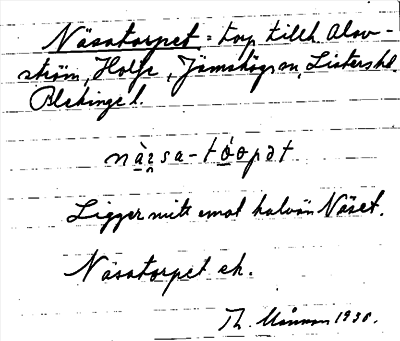 Näsatorpet = torp tillh. Alav-
ström, Holje, Jämshögs sn, Listers hd.
Blekinge l.
Ligger mitt emot halvön Näset.
Näsatorpet ek.
Th. 1938.